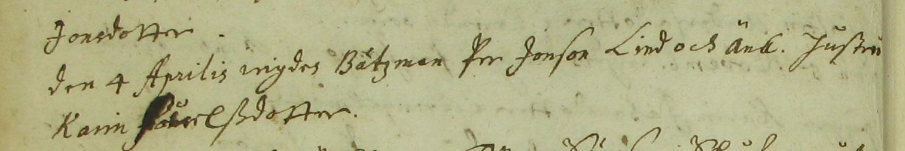 Jonsdotter.
den 4 Aprilis vigdes Båtzman Per Jonson Lind och Änk. Hustru
Karin Påvelsdotter.